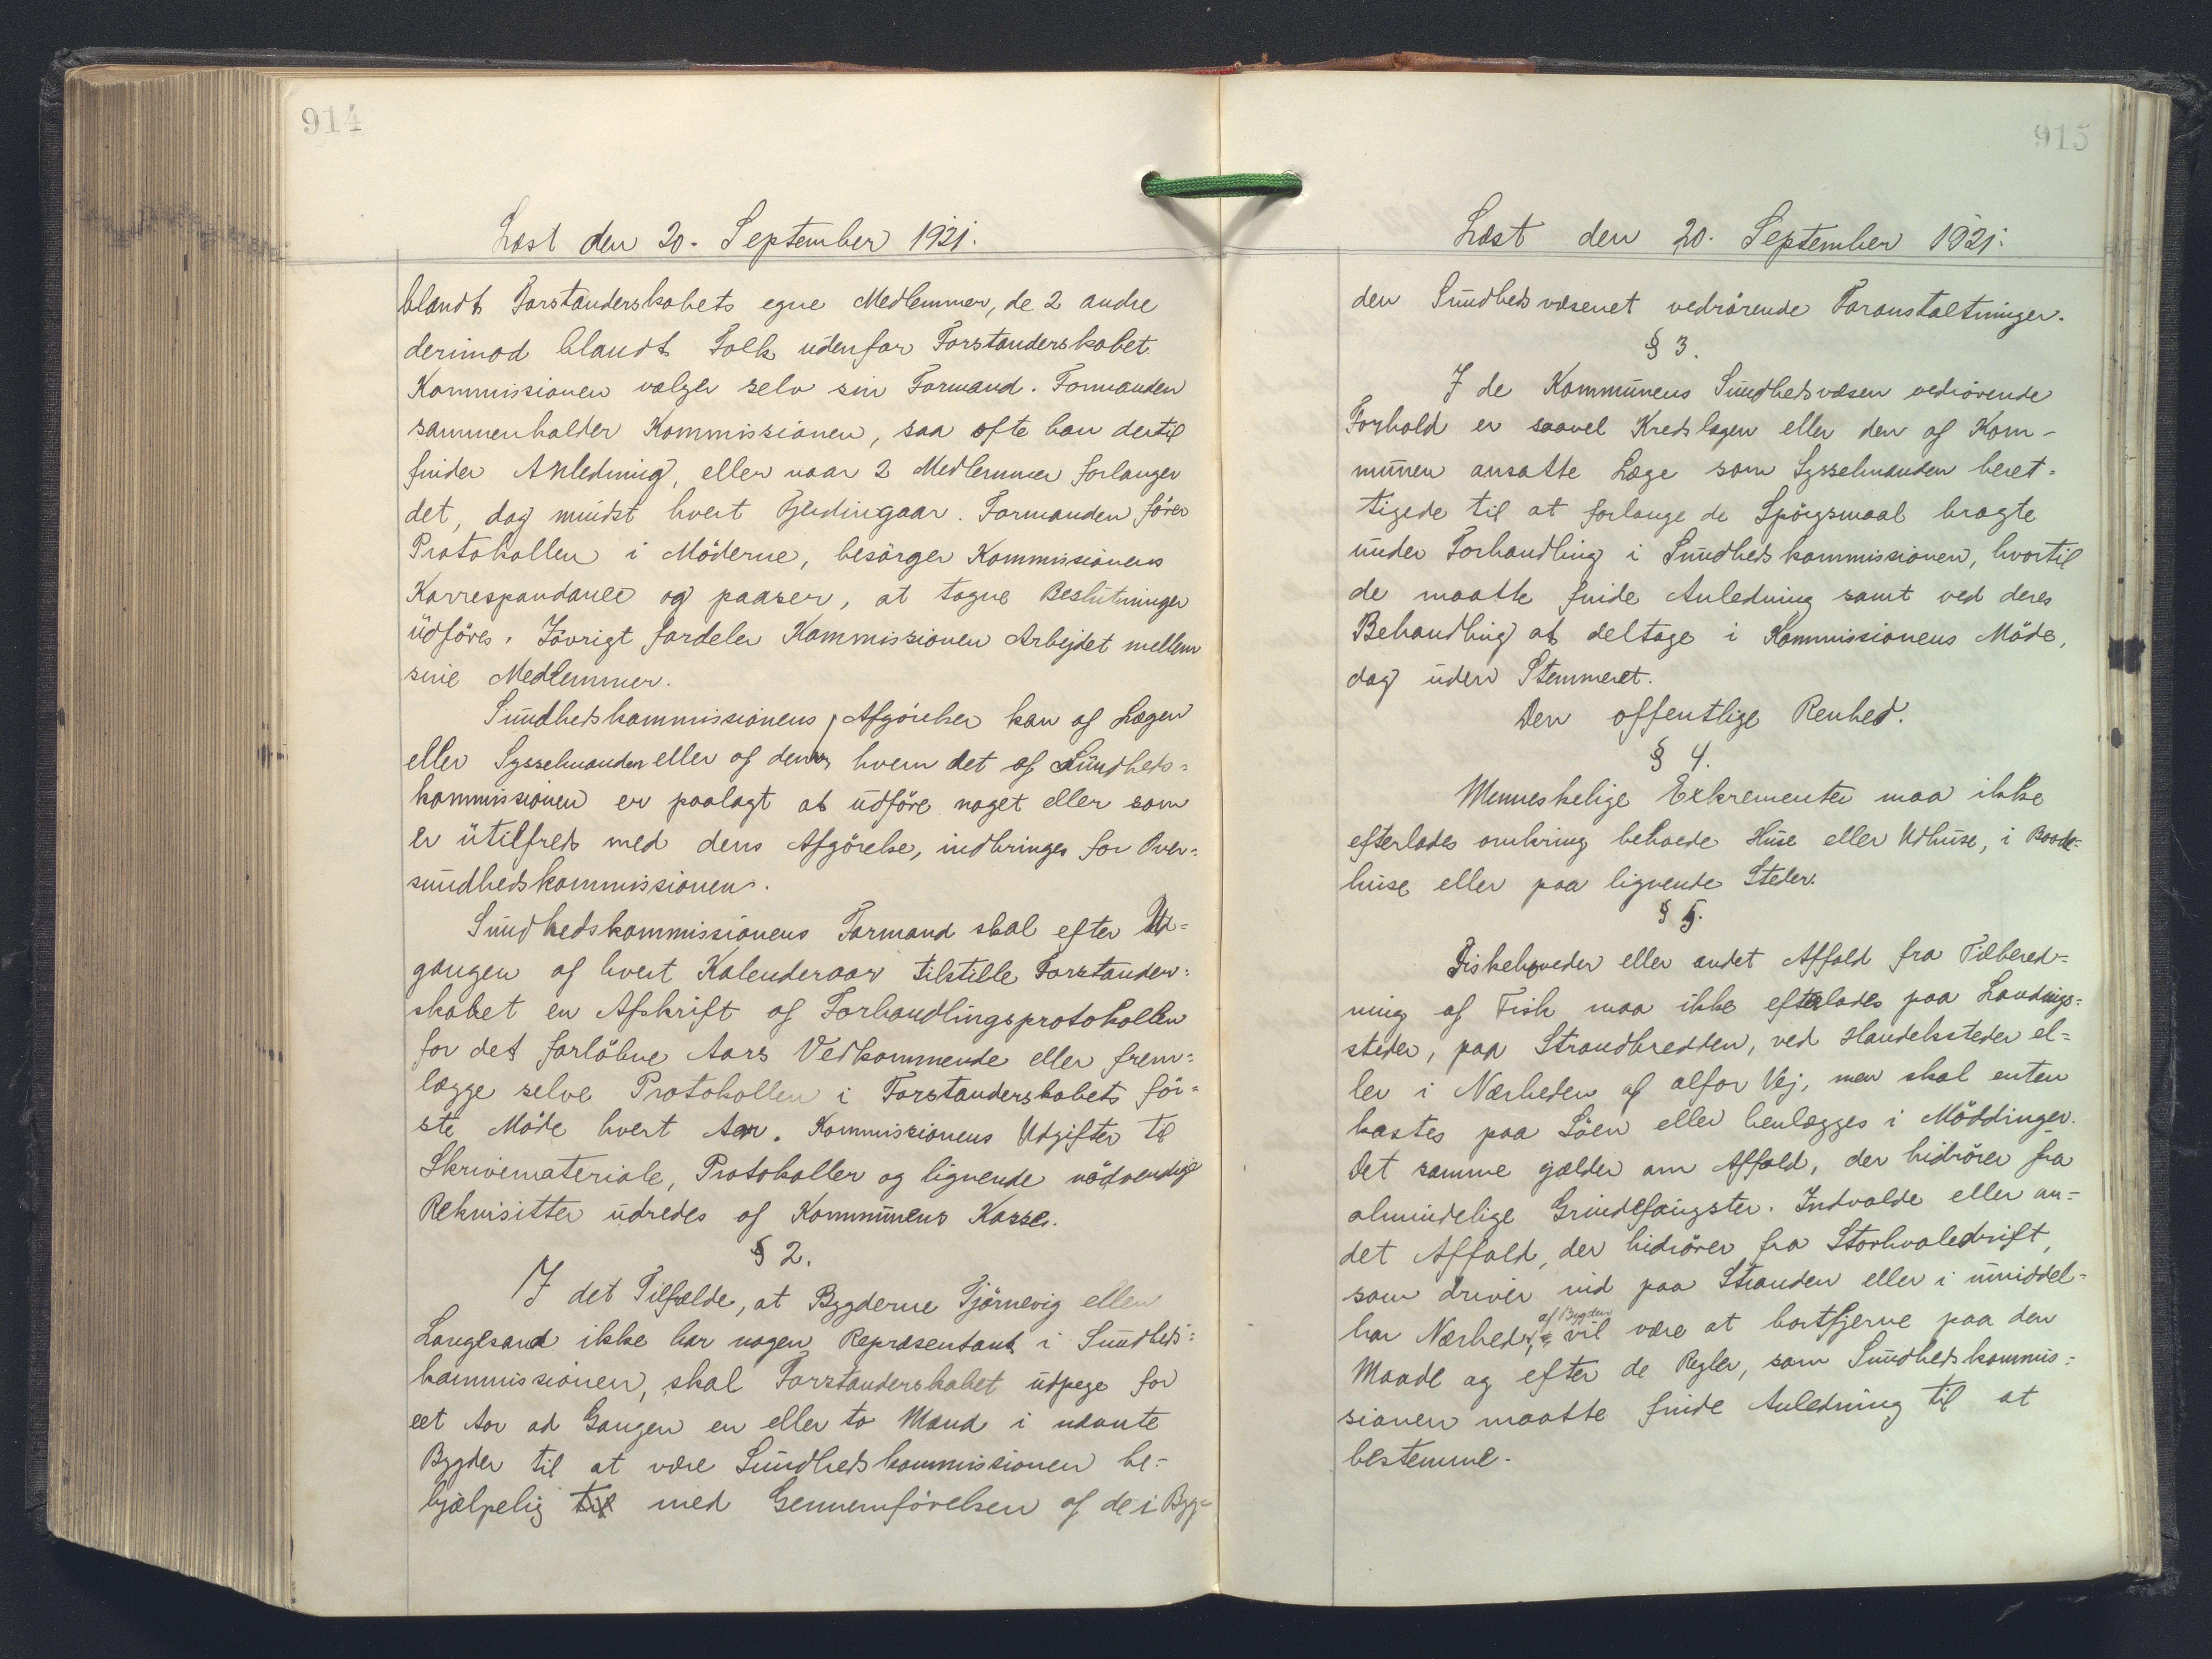 914
Læst den 20. September 1921.
blandt Forstanderskabets egne Medlemmer, de 2 andre
derimod blandt Folk udenfor Forstanderskabet.
Kommissionen vælger selv sin Formand. Formanden
sammenkalder Kommissionen, saa ofte han dertil
finder Anledning, eller naar 2 Medlemmer forlanger
det, dog mindst hvert Fjerdingaar. Formanden fører
Protokollen i Møderne, besørger Kommissionens
Korrespondance og paaser, at tagne Beslutninger
udføres. Iøvrigt fordeler Kommissionen Arbejdet mellem
sine Medlemmer.
Sundhedskommissionens Afgørelser kan af Lægen
eller Sysselmanden eller af den, hvem det af Sundheds=
kommissionen er paalagt at udføre noget eller som
er utilfreds med dens Afgørelse, indbringes for Over=
sundhedskommissionen.
Sundhedskommissionens Formand skal efter Ud=
gangen af hvert Kalenderaar tilstille Forstander=
skabet en Afskrift af Forhandlingsprotokollen
for det forløbne Aars Vedkommende eller frem=
lægge selve Protokollen i Forstanderskabets før=
ste Møde hvert Aar. Kommissionens Udgifter til
Skrivemateriale, Protokoller og lignende nødvendige
Rekvisitter udredes af Kommunens Kasse.
§ 2.
I det Tilfælde, at Bygderne Tjørnevig eller
Langesand ikke har nogen Repræsentant i Sundheds=
kommissionen, skal Forstanderskabet udpege for
eet Aar ad Gangen en eller to Mænd i nævnte
Bygder til at være Sundhedskommissionen be=
hjælpelig til med Gennemførelsen af de i Byg=
915
Læst den 20. September 1921.
den Sundhedsvæsenet vedrørende Foranstaltninger.
§ 3.
I de Kommunens Sundhedsvæsen vedrørende
Forhold er saavel Kredslægen eller den af Kom-
munen ansatte Læge som Sysselmanden beret=
tigede til at forlange de Spørgsmaal bragte
under Forhandling i Sundhedskommissionen, hvortil
de maatte finde Anledning samt ved deres
Behandling at deltage i Kommissionens Møde,
dog uden Stemmeret.
Den offentlige Renhed.
§ 4.
Menneskelige Exkrementer maa ikke
efterlades omkring beboede Huse eller Udhuse, i Baade=
huse eller paa lignende Steder.
§ 5.
Fiskehoveder eller andet Affald fra Tilbered=
ning af Fisk maa ikke efterlades paa Landings=
steder, paa Strandbredden, ved Handelssteder el=
ler i Nærheden af alfar Vej, men skal enten
kastes paa Søen eller henlægges i Møddinger.
Det samme gælder om Affald, der hidrører fra
almindelige Grindefangster. Indvolde eller an=
det Affald, der hidrører fra Storhvaledrift,
som driver ind paa Stranden eller i umiddel=
af Bygden
bar Nærhed, vil være at bortfjerne paa den
Maade og efter de Regler, som Sundhedskommis=
sionen maatte finde Anledning til at
bestemme.